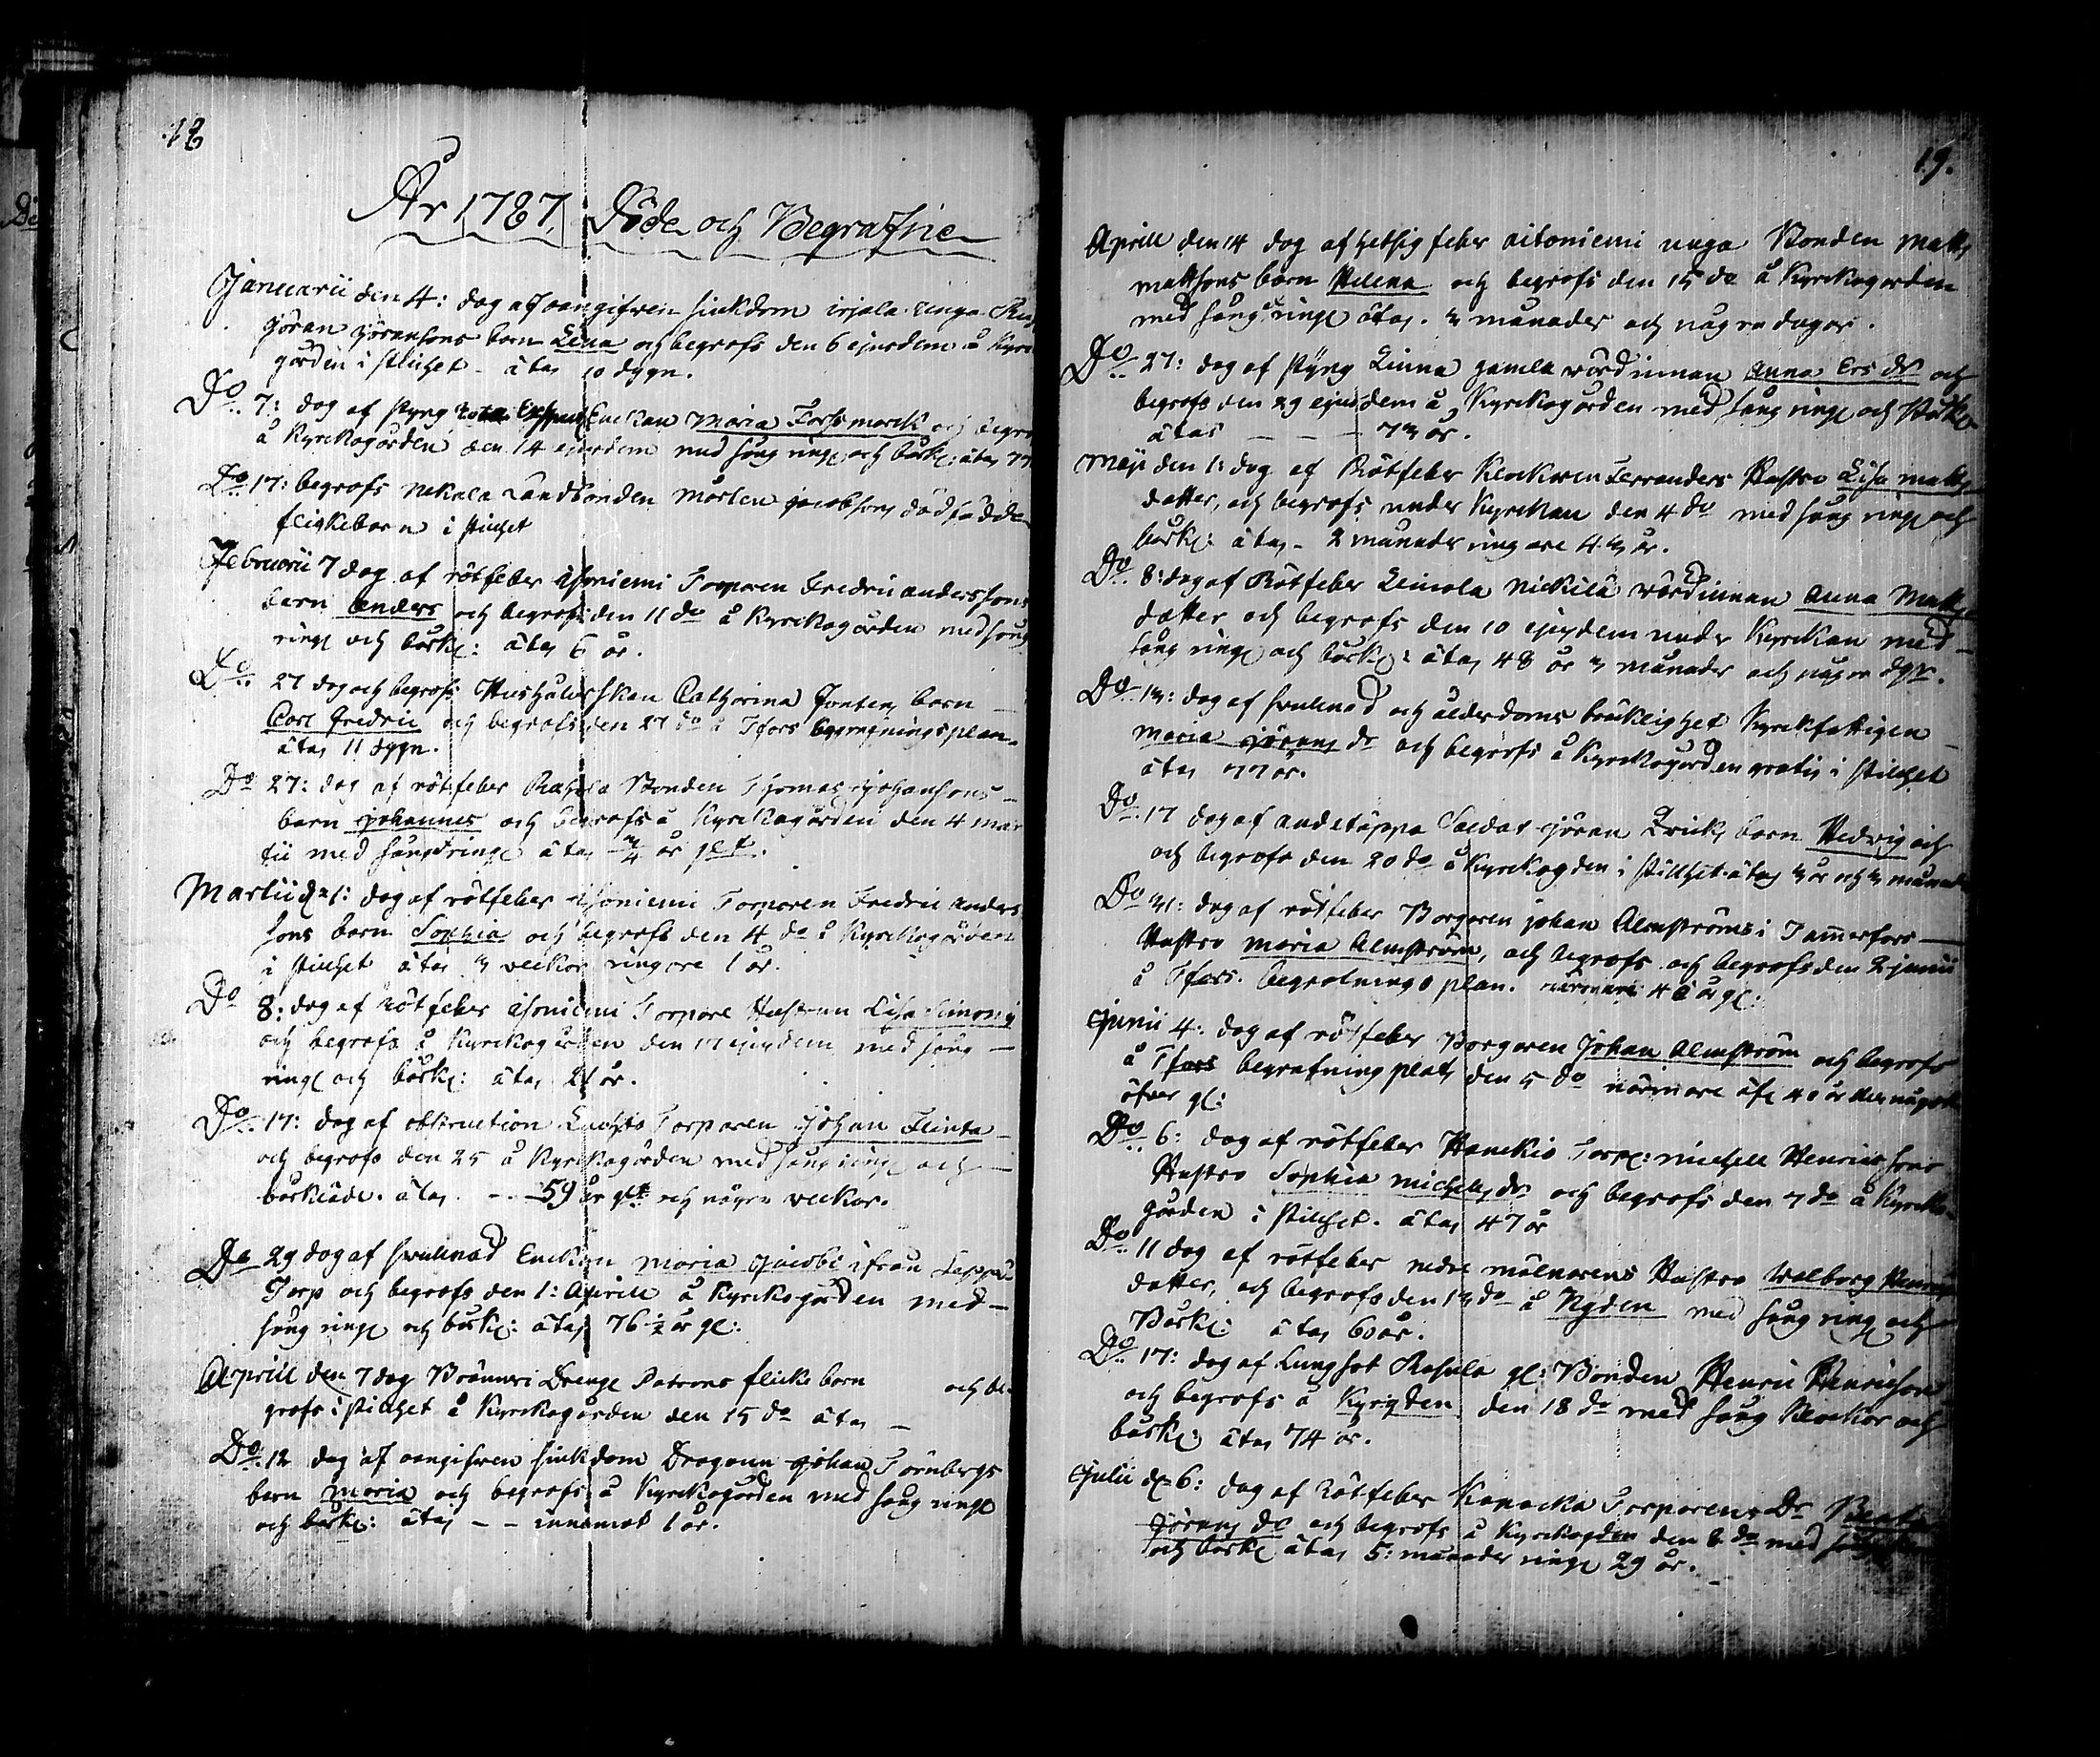 18
År 1787, Döde och Begrafne
Januarii den 4: dog af oangifven siukdom irjala
Göran Göransons barn Lena och begrofs den 6 ejusdem å Kyrko
gården i stillhet - ålas 10 dygn.
Do 7: dog af styng Enckan Maria Forssmarck och begro
å Kyrckogården den 14 ejusdem med sång ringn och bårkl: ålas
Do 17: begrofs Nekala Landbonden Mårten Jacobsons dödfödde
flickebarn i stillhet
Februarii 7 dog af rötfeber Torparen Fredric Anderssons
barn Anders och begrofs den 11 do å Kyrckogården med sång
ringn och bårkl: ålas 6 år.
Do 27 dog och begrofs Hushålerskan Catharina barn
Carl Fredric och begrofs den 27 do å Tfors begrafningsplan.
ålas 11 dygn.
Do 27: dog af rötfeber Bonden Thomas Johansons
barn Johannes och begrofs å Kyrckogården den 4 Mar
tii med sång o ringn ålas 3/4 år glt.
Martii d. 1: dog af rötfeber Torparen Fredric Anders
sons barn Sophia och begrofs den 4 do å Kyrckogården
i stillhet ålas 3 veckor ringare 1 år.
Do 8: dog af rötfeber Torpare Hustrun Lisa Simons
och begrofs å Kyrckogården den 17 ejusdem med sång
ringn och bårkl: ålas 21 år.
Do 17: dog af obstruction Torparen Johan Flinta
och begrofs den 25 å Kyrckogården med sång ringn och
bårkläde. ålas - - 59 år glt och någre veckor.
Do 29 dog af svullnad Enckan Maria Jacobs ifrån
Torp och begrofs den 1: Aprill å Kyrckogården med
sång ringn och bårkl: ålas 76 1/2 år gl:
Aprill den 7 dog Drenge flicke barn och be-
grofs i stillhet å Kyrckogården den 15 do ålas -
Do 12 dog af oangifven siukdom Dragoun Johan Törnbergs
barn Maria och begrofs å Kyrckogården med sång ringn
och bårkl: ålas - - innemot 1 år.
19.
Aprill den 14 dog af hetsig feber aitoniemi unga Bonden Matts
Mattsons barn Helena och begrofs den 15 do å Kyrckogården
med sång o ringn ålas. 3 månader och någre dagar.
Do 27: dog af styng Linna gamla värdinnan Anna Ers dr och
begrofs den 29 ejusdem å Kyrckogården med sång ringn och bårkl
ålas - - - 73 år.
Maji den 1: dog af Rötfeber Klockaren Hustro Lisa Matts
dotter, och begrofs under Kyrckan den 4 do med sång ringn och
bårkl: ålas - 2 månader ringare 43 år.
Do 8: dog af Rötfeber Leinola Nickilä värdinnan Anna Matts
dotter och begrofs den 10 ejusdem under Kyrckan med
sång ringn och bårkl: ålas 48 år 3 månader och någre dgr.
Do 13: dog af svullnad och ålderdoms bräcklighet Kyrckfattigen
Maria Görans dr och begrofs å Kyrckogården gratis i stillhet
ålas 77 år.
Do 17 dog af andetäppa Soldat Göran Qvicks barn Hedvig och
och begrofs den 20 do å Kyrckogden i stillhet ålas 3 år och 3 månader
Do 31: dog af rötfeber Borgaren Johan Almströms i Tammerfors
Hustro Maria Almström, och begrofs och begrofs den 2 junii
å Tfors. begrafnings plan. närmare 40 år gl:
Junii 4: dog af rötfeber Borgaren Johan Almström och begrofs
å Tfors begrafning plats den 5 do närmare 40 år
öfver gl:
Do 6: dog af rötfeber Hanckio Torp: Michell Henricssons
Hustro Sophia Michels dr och begrofs den 7 do å Kyrcko-
gården i stillhet. ålas 47 år
Do 11 dog af rötfeber nedre mölnarens Hustro Walborg Henrics
dotter, och begrofs den 13 do å Kgden med sång ringn och
Bårkl: ålas 60 år.
Do 17: dog af Lungsot gl: Bonden Henric Henricson
och begrofs å Kyrgden den 18 do med sång klockor och
bårkl: ålas 74 år.
Julii d. 6: dog af rötfeber Torparens Dr
Görans dr och begrofs å Kyrckogden den 8 do med sång
och bårkl ålas 5: månader ringn 29 år.